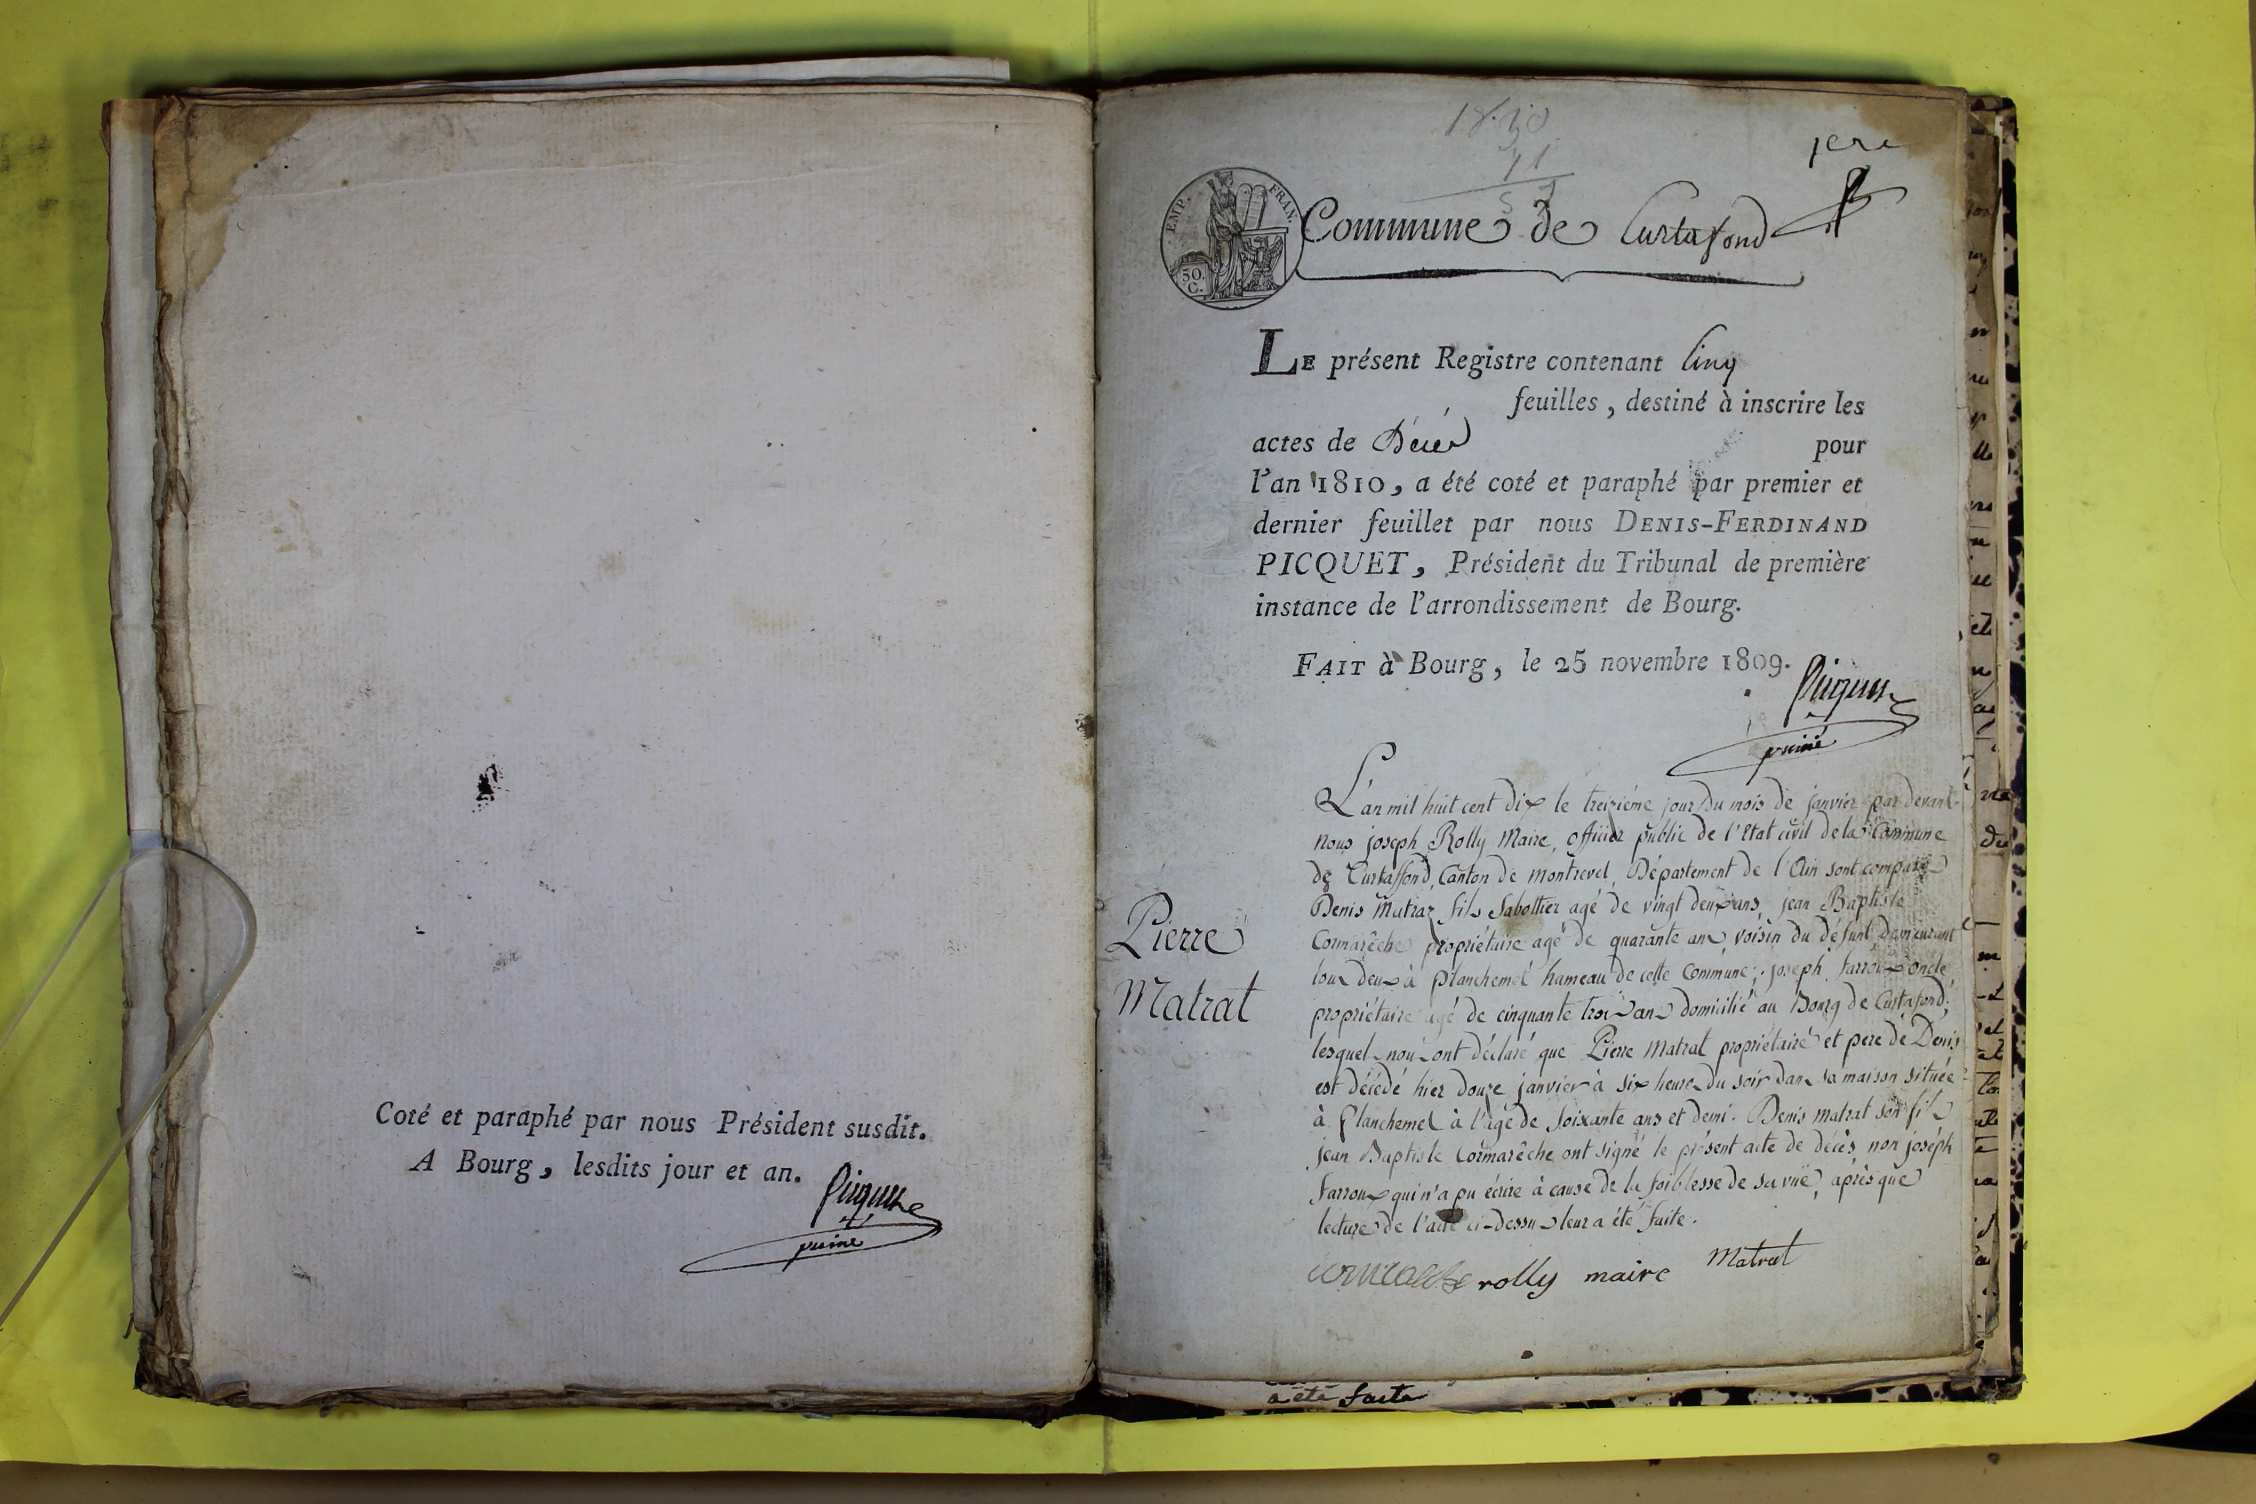 Coté et paraphé par nous Président susdit.
A Bourg, lesdits jour et an.
Picquet
puiné
1810
71
57
1ere
EMP. FRAN.
50.
C.
Commune de Curtafond
LE présent Registre contenant Cinq
feuilles, destiné à inscrire les
actes de Décès pour
l'an 1810, a été coté et paraphé par premier et
dernier feuillet par nous DENIS-FERDINAND
PICQUET, Président du Tribunal de première
instance de l'arrondissement de Bourg.
FAIT à Bourg, le 25 novembre 1809.
Picquet
puiné
Pierre
Matrat
L'an mil huit cent dix le treizième jour du mois de janvier par devant
nous joseph Rolly Maire, officier public de l'Etat civil de la Commune
de Curtaffond, Canton de montrevel, Département de l'Ain sont comparus
Denis Matraz fils Sabottier agé de vingt deux ans, jean Baptiste
Cormarêche propriétaire agé de quarante ans voisin du défunt demeurant
tous deux à Planchemel hameau de cette Commune; joseph farroux oncle
propriétaire agé de cinquante trois ans domicilié au Bourg de Curtafond;
lesquels nous ont déclaré que Pierre Matrat propriétaire et pere de Denis
est décédé hier douze janvier à six heures du soir dans sa maison située
à Planchemel à l'âge de soixante ans et demi. Denis matrat son fils
jean Baptiste Cormarêche ont signé le présent acte de décès, non joséph
farroux qui n'a pu écrire à cause de la foiblesse de sa vüe, après que
lecture de l'acte ci-dessus leur a été faite.
cormareche rolly maire Matrat
a été faite